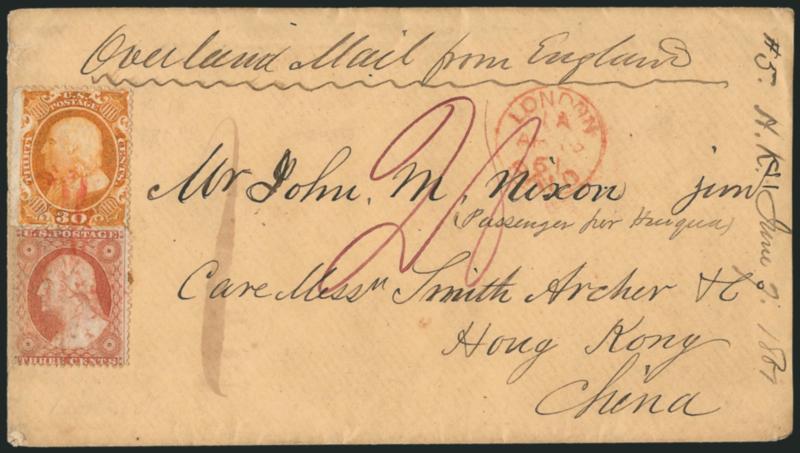 Overland Mail from England
U.S. POSTAGE
THIRTY
CENTS
30
U.S. POSTAGE
THREE CENTS
LONDON
PAID
28
1
Mr John. M. Nixon jun
(Passenger per Huiqua)
Care Messrs Smith Archer & Co
Hong Kong
China
#5. H. K. June 7. 1861